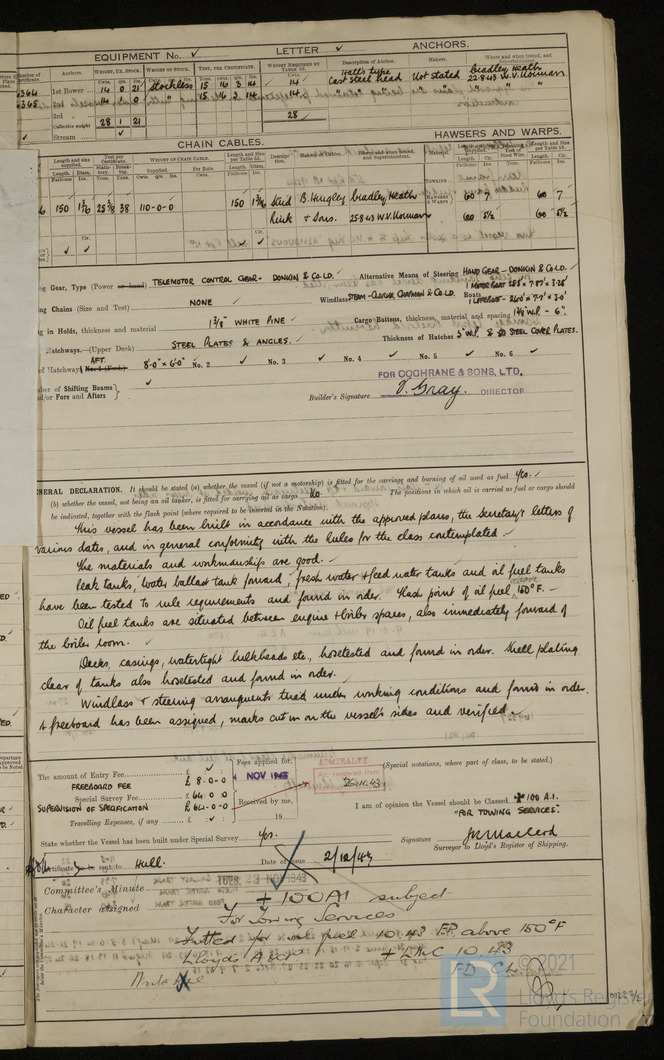 EQUIPMENT No. ✓ LETTER ✓ ANCHORS.
Anchors. WEIGHT, EX. STOCK. WEIGHT OF STOCK. TEST, PER CERTIFICATE. WEIGHT REQUIRED BY TABLE 53. Description of Anchor. Makers. Where and when tested, and
1st Bower 14 0 21 Stockless 15 16 3 14 14 Hall's type Cast steel head Not stated Bradley Heath 22.8.43 W.V. Norman
2nd " 14 1 0 " 15 16 3 14 14
3rd "
Collective weight 28 1 21 28
Stream
CHAIN CABLES. HAWSERS AND WARPS.
Length and size supplied. Test per Certificate. WEIGHT OF CHAIN CABLE. Length and Size per Table 53. Makers of Cable. Where and when tested, and Superintendent.
150 1 3/16 25 3/8 38 110-0-0 150 1 3/16 Stud B. Hingley Bradley Heath 60 7 60 7
Link & Sons. 25.8.43 W.V. Norman 60 5½ 60 5½
Gear, Type (Power or hand) TELEMOTOR CONTROL GEAR - DONKIN & CO LD. Alternative Means of Steering HAND GEAR - DONKIN & CO LD.
Chains (Size and Test) NONE Windlass STEAM - CLARKE CHAPMAN & CO LD. Boats
in Holds, thickness and material 1 3/8" WHITE PINE Cargo Battens, thickness, material and spacing 1 3/8" W.P. - 6".
Hatchways.—(Upper Deck) STEEL PLATES & ANGLES. Thickness of Hatches 3" W.P. & STEEL COVER PLATES.
of Hatchways AFT. 8'-0" × 6'-0" No. 2 ✓ No. 3 ✓ No. 4 ✓ No. 5 ✓ No. 6 ✓
of Shifting Beams and/or Fore and Afters
FOR COCHRANE & SONS, LTD.
Builder's Signature Gray. DIRECTOR
GENERAL DECLARATION. It should be stated (a) whether the vessel (if not a motorship) is fitted for the carriage and burning of oil used as fuel Yes.
(b) whether the vessel, not being an oil tanker, is fitted for carrying oil as cargo No. The positions in which oil is carried as fuel or cargo should
be indicated, together with the flash point (where required to be inserted in the Notation).
This vessel has been built in accordance with the approved plans, the secretary's letters of
various dates, and in general conformity with the Rules for the class contemplated.
The materials and workmanship are good.
Peak tanks, water ballast tank forward, fresh water & feed water tanks and oil fuel tanks
have been tested to rule requirements and found in order. Flash point of oil fuel, above 150°F.
Oil fuel tanks are situated between engine & boiler spaces, also immediately forward of
the boiler room.
Decks, casings, watertight bulkheads etc., hosetested and found in order. Shell plating
clear of tanks also hosetested and found in order.
Windlass & steering arrangements tried under working conditions and found in order.
A freeboard has been assigned, marks cut in on the vessel's sides and verified.
The amount of Entry Fee £ : : Fees applied for, NOV 1943 ADMIRALTY (Special notations, where part of class, to be stated.)
FREEBOARD FEE £ 8-0-0
Special Survey Fee £ 64:0:0 25.11.43
SUPERVISION OF SPECIFICATION £ 64-0-0 Received by me, I am of opinion the Vessel should be Classed +100 A.1.
Travelling Expenses, if any £ : : 19 "FOR TOWING SERVICES".
State whether the Vessel has been built under Special Survey Yes. Signature
Surveyor to Lloyd's Register of Shipping.
Certificate to be sent to Hull. Date of issue 2/12/43
Committee's Minute TUES. 23 NOV 1943
Character assigned +100A1 subject
For Towing Services
Fitted for oil fuel 10.43 F.P. above 150°F
Lloyd's A&CP +LMC 10.43
FD CL
LR © 2021
Lloyd's Register
Foundation